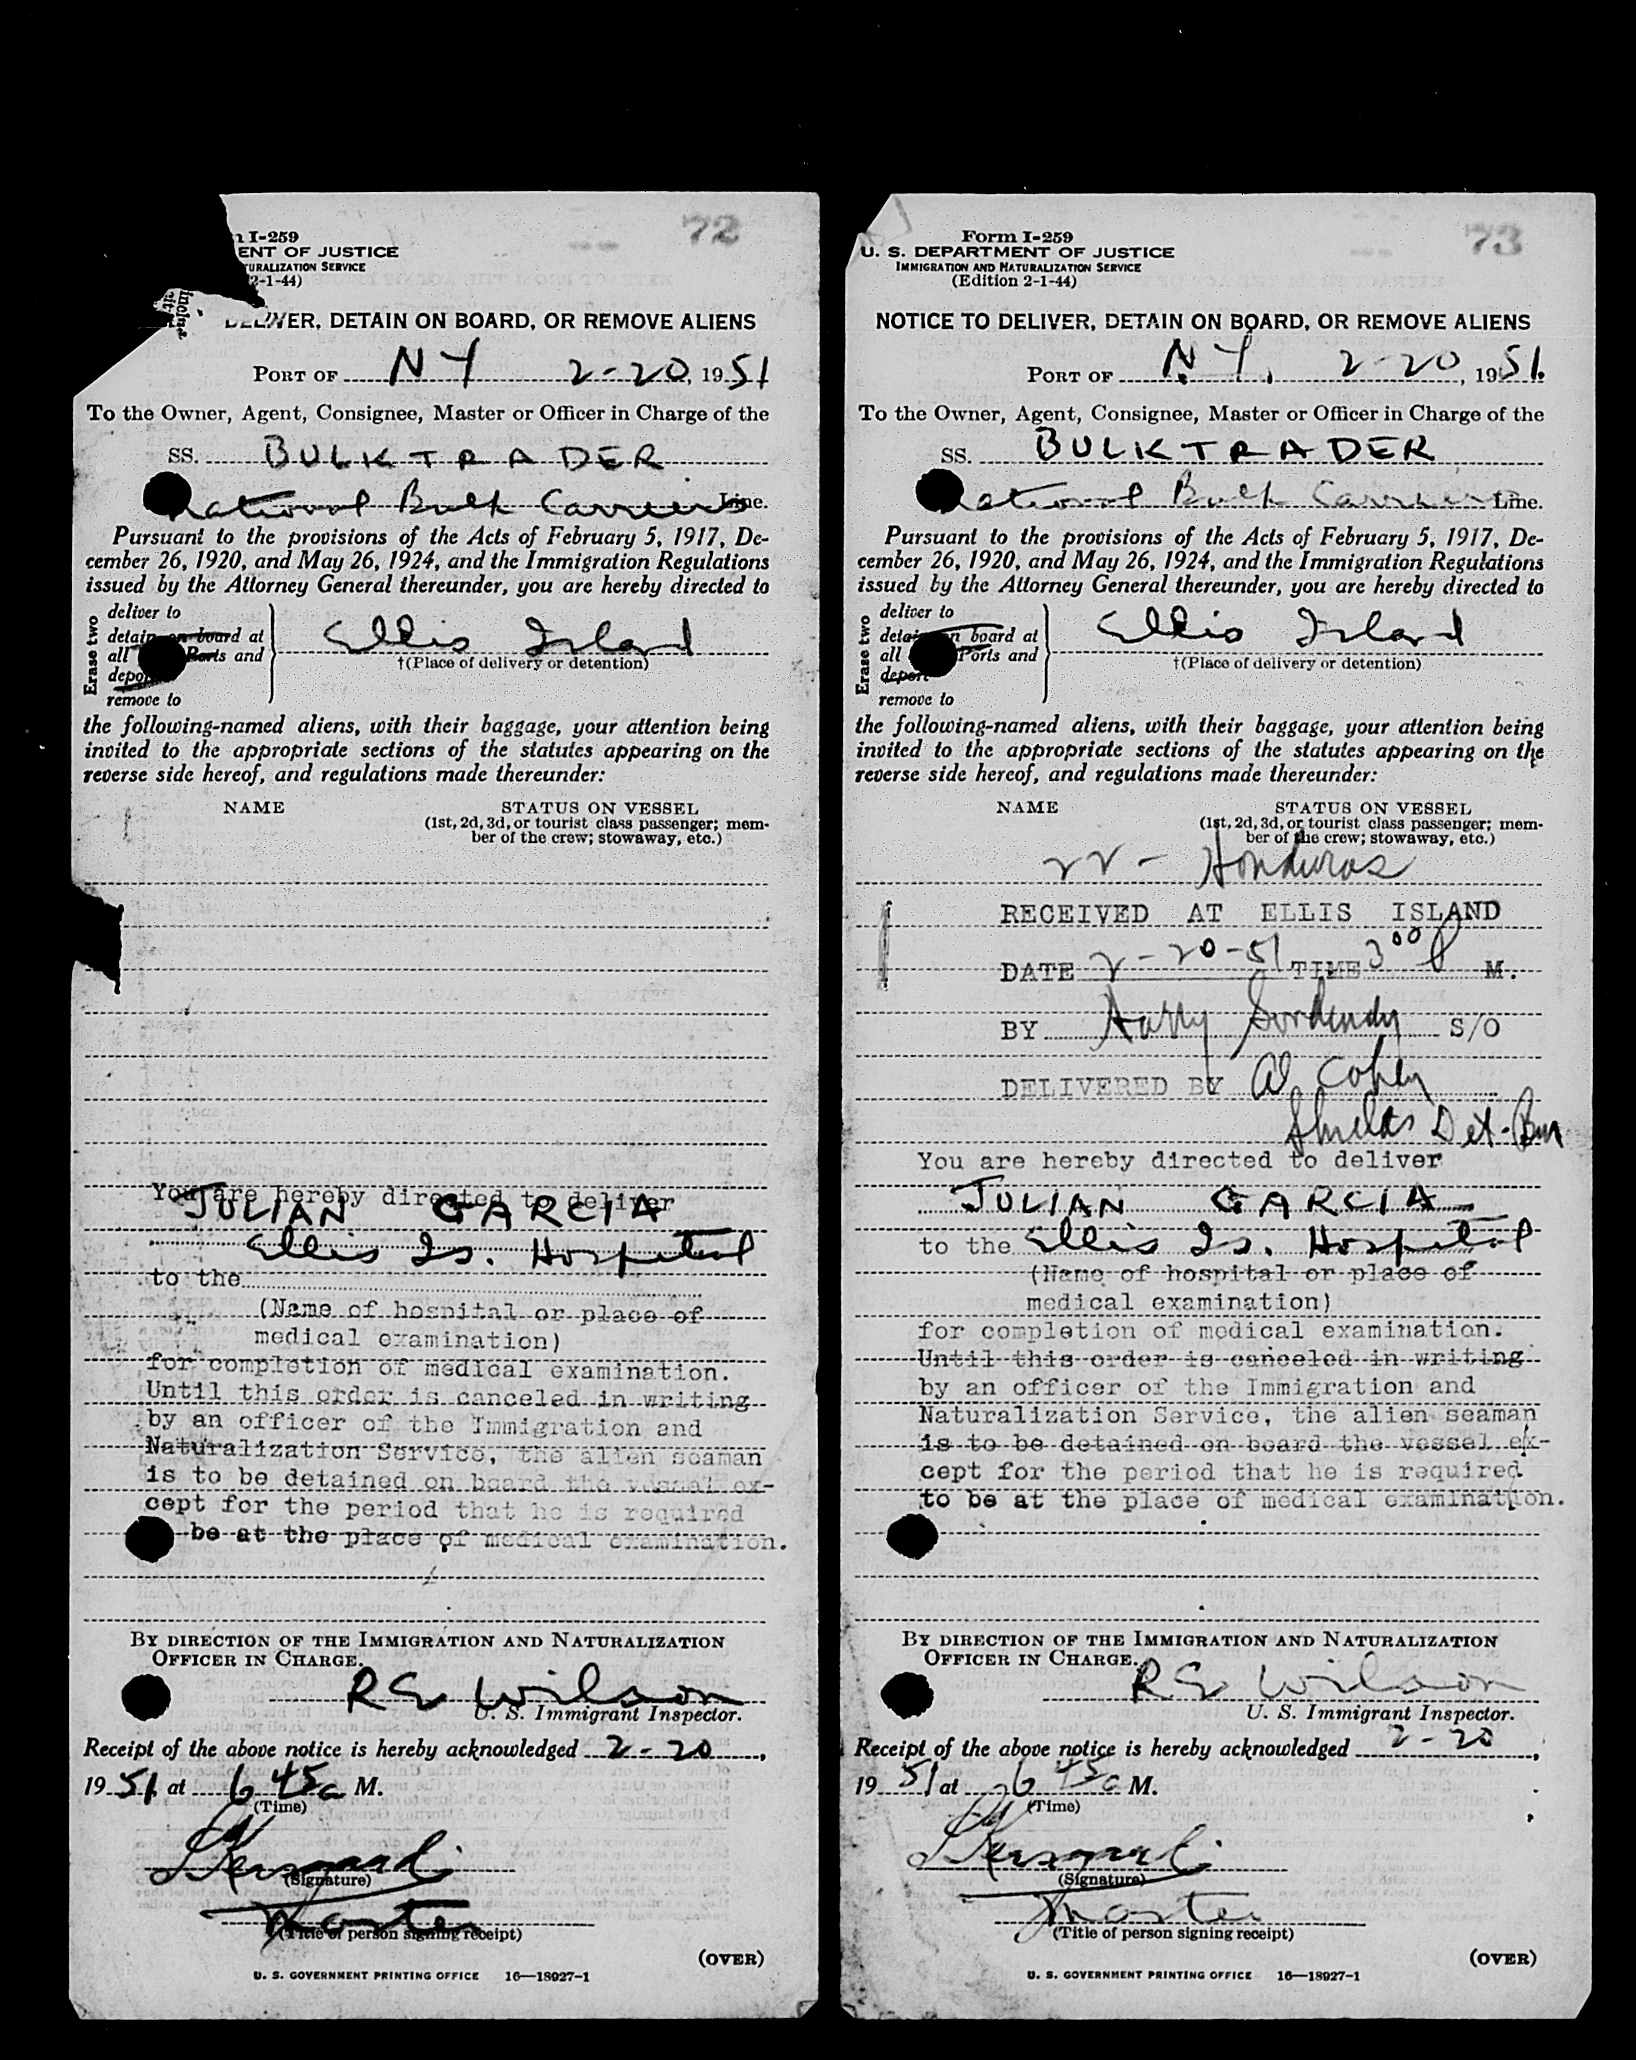 72
I-259
ENT OF JUSTICE
TURALIZATION SERVICE
2-1-44)
DELIVER, DETAIN ON BOARD, OR REMOVE ALIENS
PORT OF NY 2-20, 1951
To the Owner, Agent, Consignee, Master or Officer in Charge of the
SS. BULKTRADER
National Bulk Carriers Line.
Pursuant to the provisions of the Acts of February 5, 1917, De-
cember 26, 1920, and May 26, 1924, and the Immigration Regulations
issued by the Attorney General thereunder, you are hereby directed to
Erase two
deliver to
detain on board at
all Ports and
depor
remove to
Ellis Island
†(Place of delivery or detention)
the following-named aliens, with their baggage, your attention being
invited to the appropriate sections of the statutes appearing on the
reverse side hereof, and regulations made thereunder:
NAME STATUS ON VESSEL
(1st, 2d, 3d, or tourist class passenger; mem-
ber of the crew; stowaway, etc.)
You are hereby directed to deliver
JULIAN GARCIA
Ellis Is. Hospital
to the
(Name of hospital or place of
medical examination)
for completion of medical examination.
Until this order is canceled in writing
by an officer of the Immigration and
Naturalization Service, the alien seaman
is to be detained on board the vessel ex-
cept for the period that he is required
be at the place of medical examination.
BY DIRECTION OF THE IMMIGRATION AND NATURALIZATION
OFFICER IN CHARGE.
RE Wilson
U. S. Immigrant Inspector.
Receipt of the above notice is hereby acknowledged 2-20,
1951 at 6 45 a M.
(Time)
(Signature)
Master
(Title of person signing receipt)
(OVER)
U. S. GOVERNMENT PRINTING OFFICE 16—18927-1
73
Form I-259
U. S. DEPARTMENT OF JUSTICE
IMMIGRATION AND NATURALIZATION SERVICE
(Edition 2-1-44)
NOTICE TO DELIVER, DETAIN ON BOARD, OR REMOVE ALIENS
PORT OF N.Y. 2-20, 1951.
To the Owner, Agent, Consignee, Master or Officer in Charge of the
SS. BULKTRADER
National Bulk Carriers Line.
Pursuant to the provisions of the Acts of February 5, 1917, De-
cember 26, 1920, and May 26, 1924, and the Immigration Regulations
issued by the Attorney General thereunder, you are hereby directed to
Erase two
deliver to
detain on board at
all Ports and
deport
remove to
Ellis Island
†(Place of delivery or detention)
the following-named aliens, with their baggage, your attention being
invited to the appropriate sections of the statutes appearing on the
reverse side hereof, and regulations made thereunder:
NAME STATUS ON VESSEL
(1st, 2d, 3d, or tourist class passenger; mem-
ber of the crew; stowaway, etc.)
22 - Honduras
RECEIVED AT ELLIS ISLAND
DATE 2-20-51 TIME 3 00 P M.
BY Harry S/O
DELIVERED BY Al
Shields Det. Bur
You are hereby directed to deliver
JULIAN GARCIA
to the Ellis Is. Hospital
(Name of hospital or place of
medical examination)
for completion of medical examination.
Until this order is canceled in writing
by an officer of the Immigration and
Naturalization Service, the alien seaman
is to be detained on board the vessel ex-
cept for the period that he is required
to be at the place of medical examination.
BY DIRECTION OF THE IMMIGRATION AND NATURALIZATION
OFFICER IN CHARGE.
RE Wilson
U. S. Immigrant Inspector.
Receipt of the above notice is hereby acknowledged 2-20,
1951 at 6 45 a M.
(Time)
(Signature)
Master
(Title of person signing receipt)
(OVER)
U. S. GOVERNMENT PRINTING OFFICE 16—18927-1